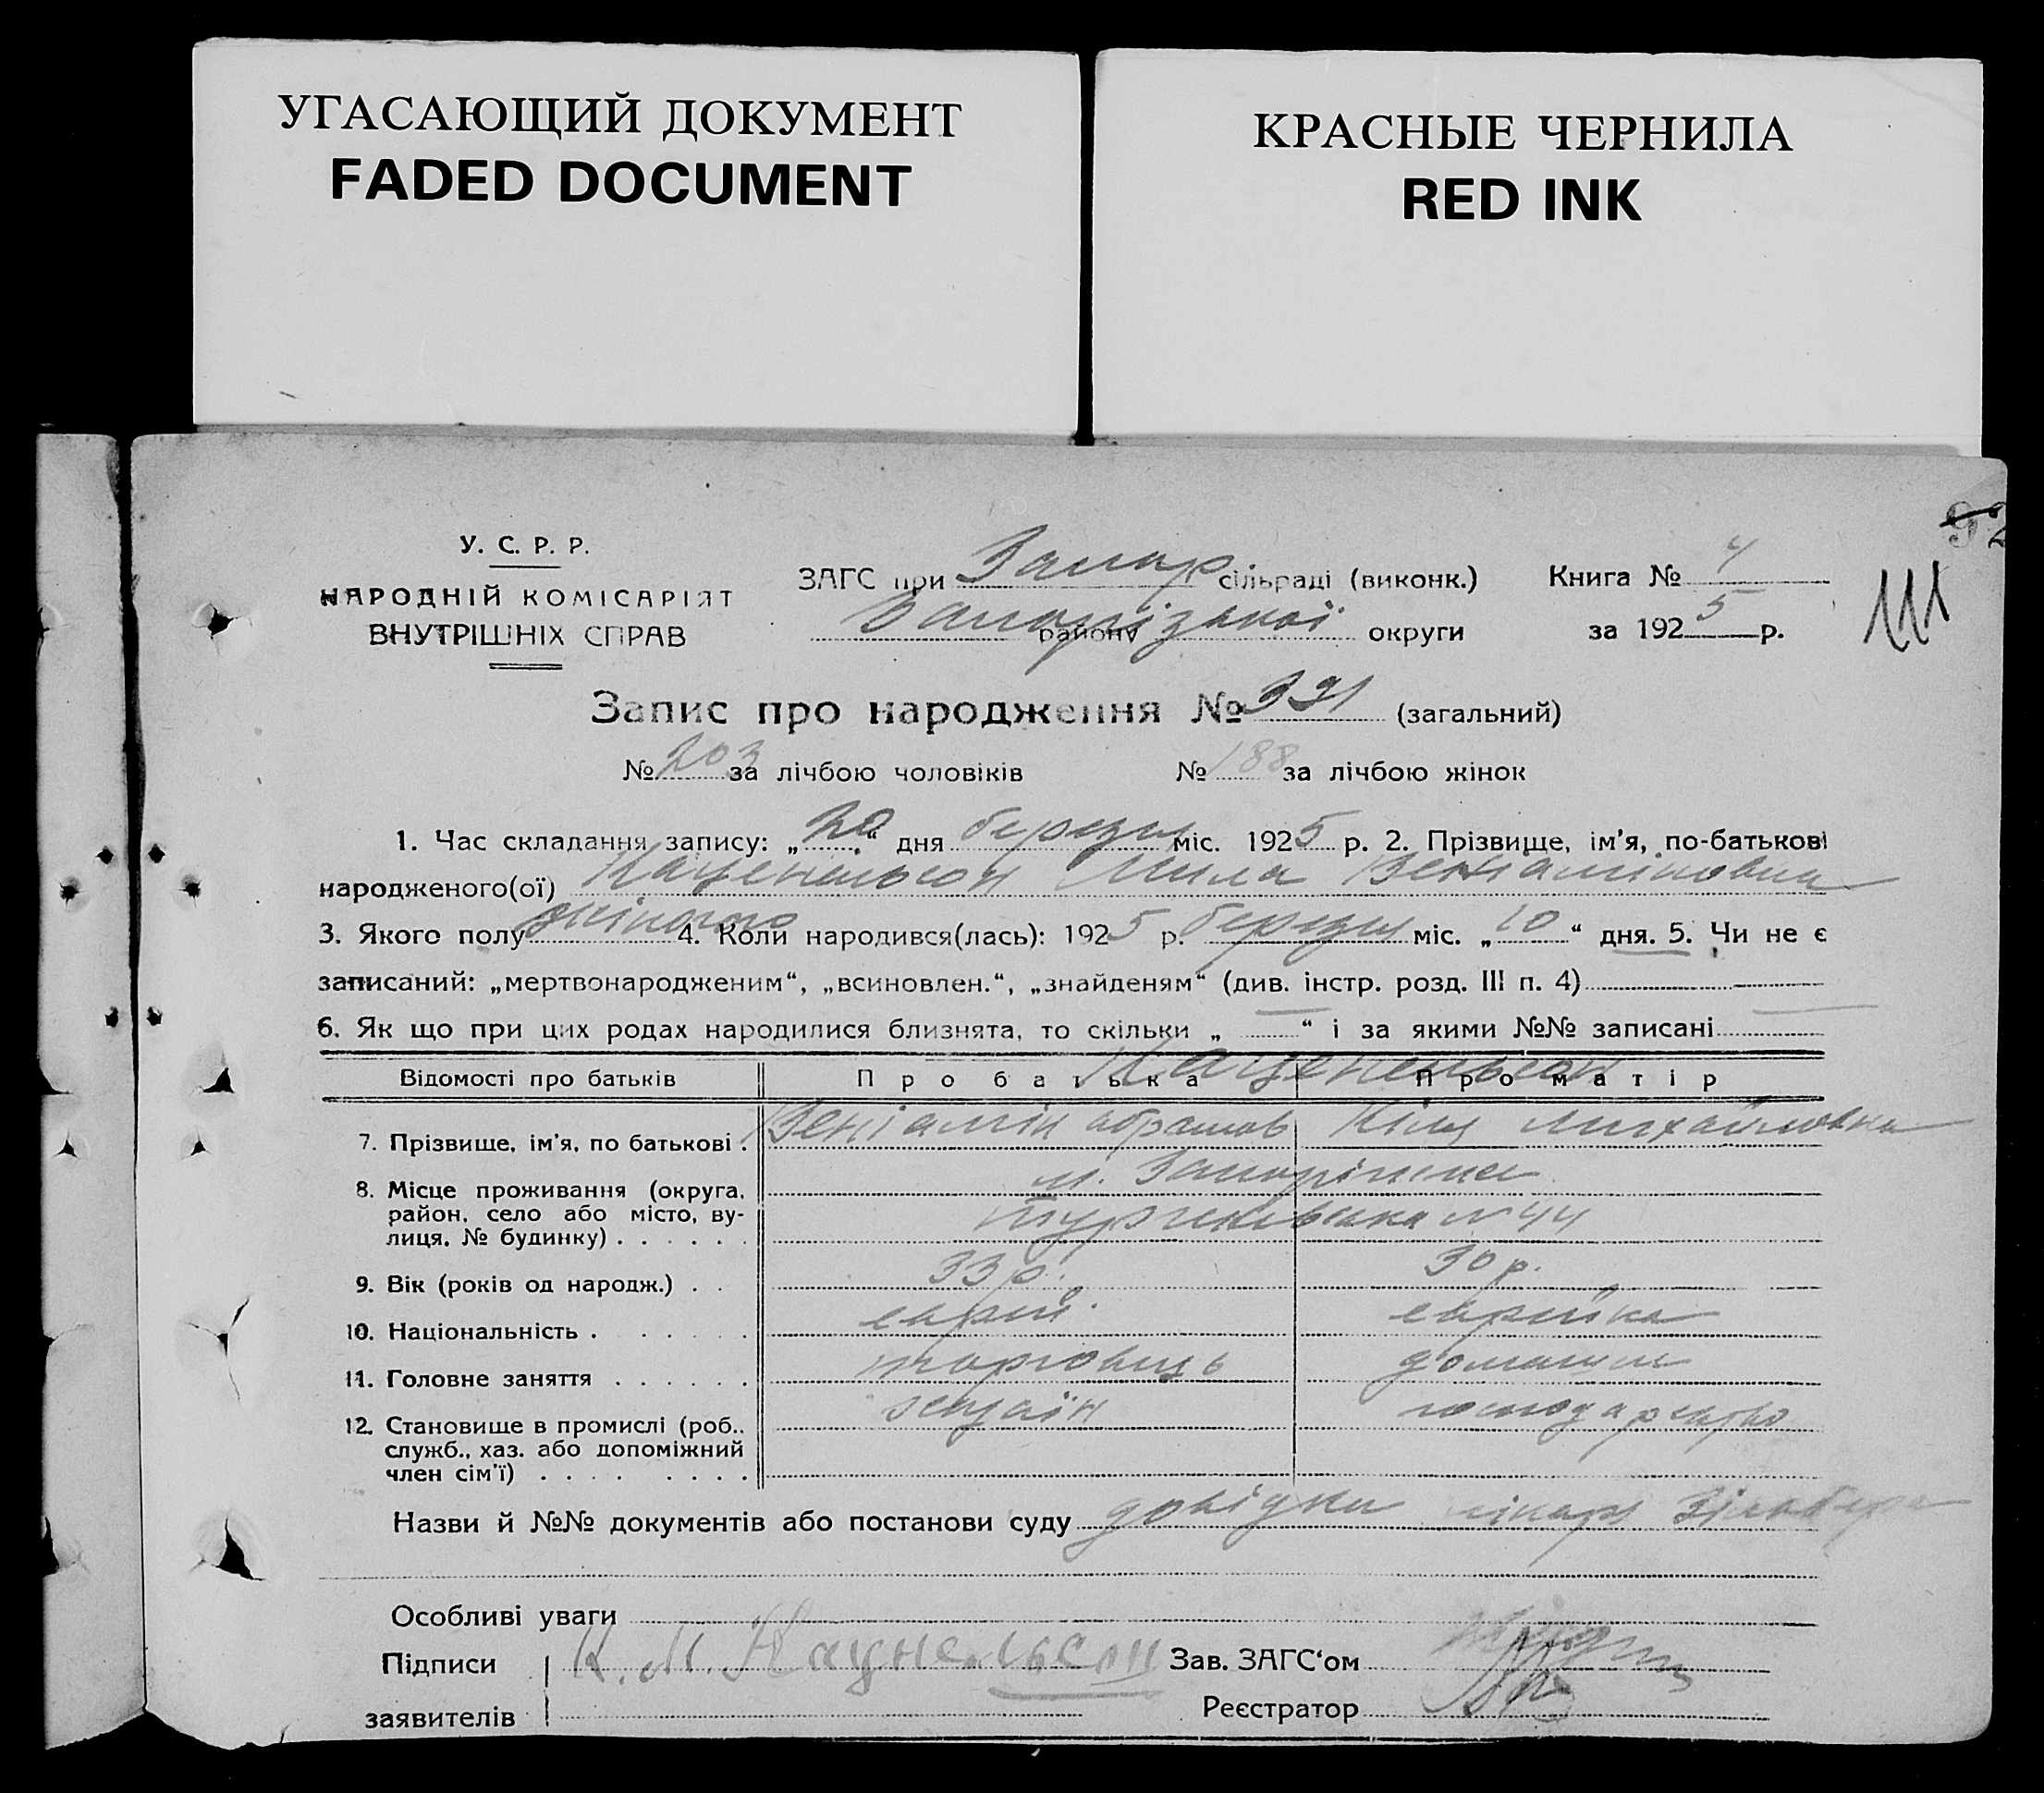 УГАСАЮЩИЙ ДОКУМЕНТ
FADED DOCUMENT
КРАСНЫЕ ЧЕРНИЛА
RED INK
У. С. Р. Р.
НАРОДНІЙ КОМІСАРІЯТ
ВНУТРІШНІХ СПРАВ
ЗАГС при Запор. сільраді (виконк.)
району Запорізької округи
Книга № 4
за 1925 р.
111
Запис про народження № 391 (загальний)
№ 203 за лічбою чоловіків № 188 за лічбою жінок
1. Час складання запису: „20“ дня березня міс. 1925 р. 2. Прізвище, ім'я, по-батькові
народженого(ої) Каценельсон Мила Веніаміновна
3. Якого полу жіночого 4. Коли народився(лась): 1925 р. березня міс. „10“ дня. 5. Чи не є
записаний: „мертвонародженим“, „всиновлен.“, „знайденям“ (див. інстр. розд. III п. 4)
6. Як що при цих родах народилися близнята, то скільки „ — “ і за якими №№ записані —
Відомості про батьків Про батька Про матір
Каценельсон
7. Прізвище, ім'я, по батькові . Веніамін Абрамов Михайловна
8. Місце проживання (округа, м. Запоріжжя
район, село або місто, ву- № 44
лиця, № будинку) . . . . . .
9. Вік (років од народж.) . . 33 р. 30 р.
10. Національність . . . . . . . еврей. еврейка
11. Головне заняття . . . . . . торговець домашнє
12. Становище в промислі (роб., хазаїн господарство
служб., хаз. або допоміжний
член сім'ї) . . . . . . . .
Назви й №№ документів або постанови суду довідка лікаря
Особливі уваги
Підписи К. М. Кацнельсон Зав. ЗАГС‘ом
заявителів Реєстратор